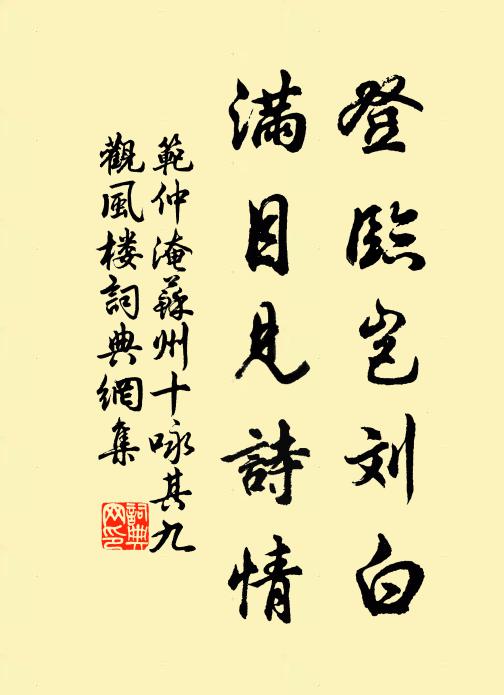 登臨岂刘白
滿目見詩情
範仲淹蘇州十咏其九
觀風楼詞典網集
詞典网印